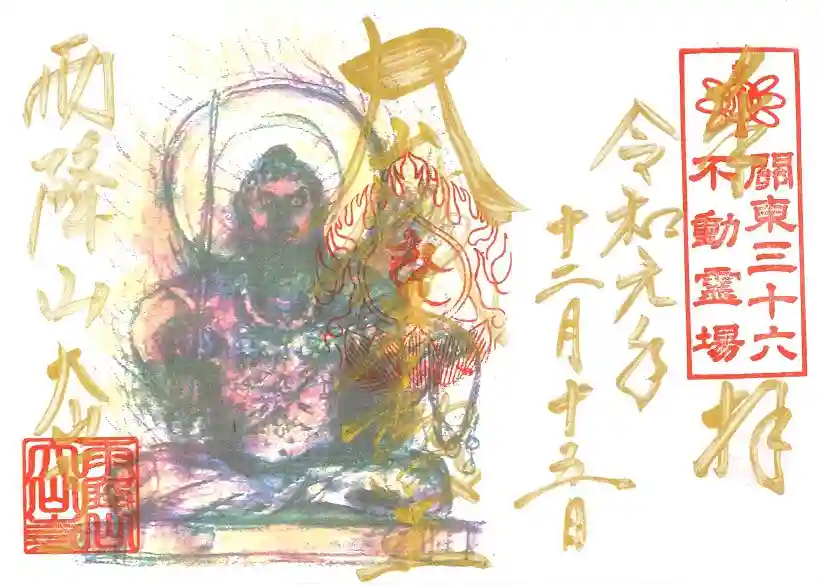 奉拝
關東三十六
不動霊場
令和元年
十二月十五日
大山
雨降山大山寺
雨降山
大山寺